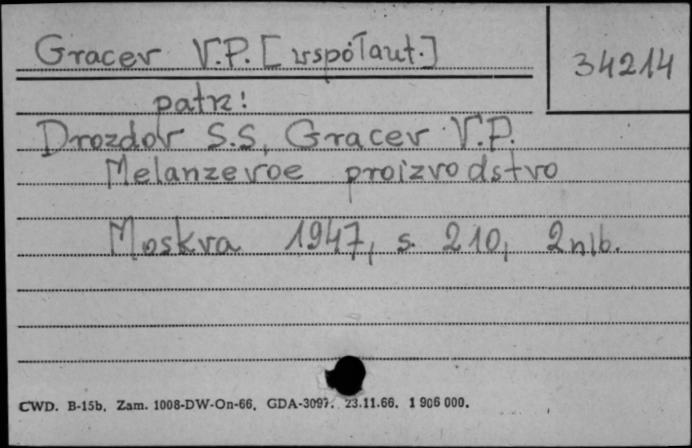 Gracev V.P. [współaut.]
34214
patrz:
Drozdov S.S, Gracev V.P.
Melanzevoe proizvodstvo
Moskva 1947, s. 210, 2nlb.
CWD. B-15b. Zam. 1008-DW-On-66. GDA-3097. 23.11.66. 1 906 000.